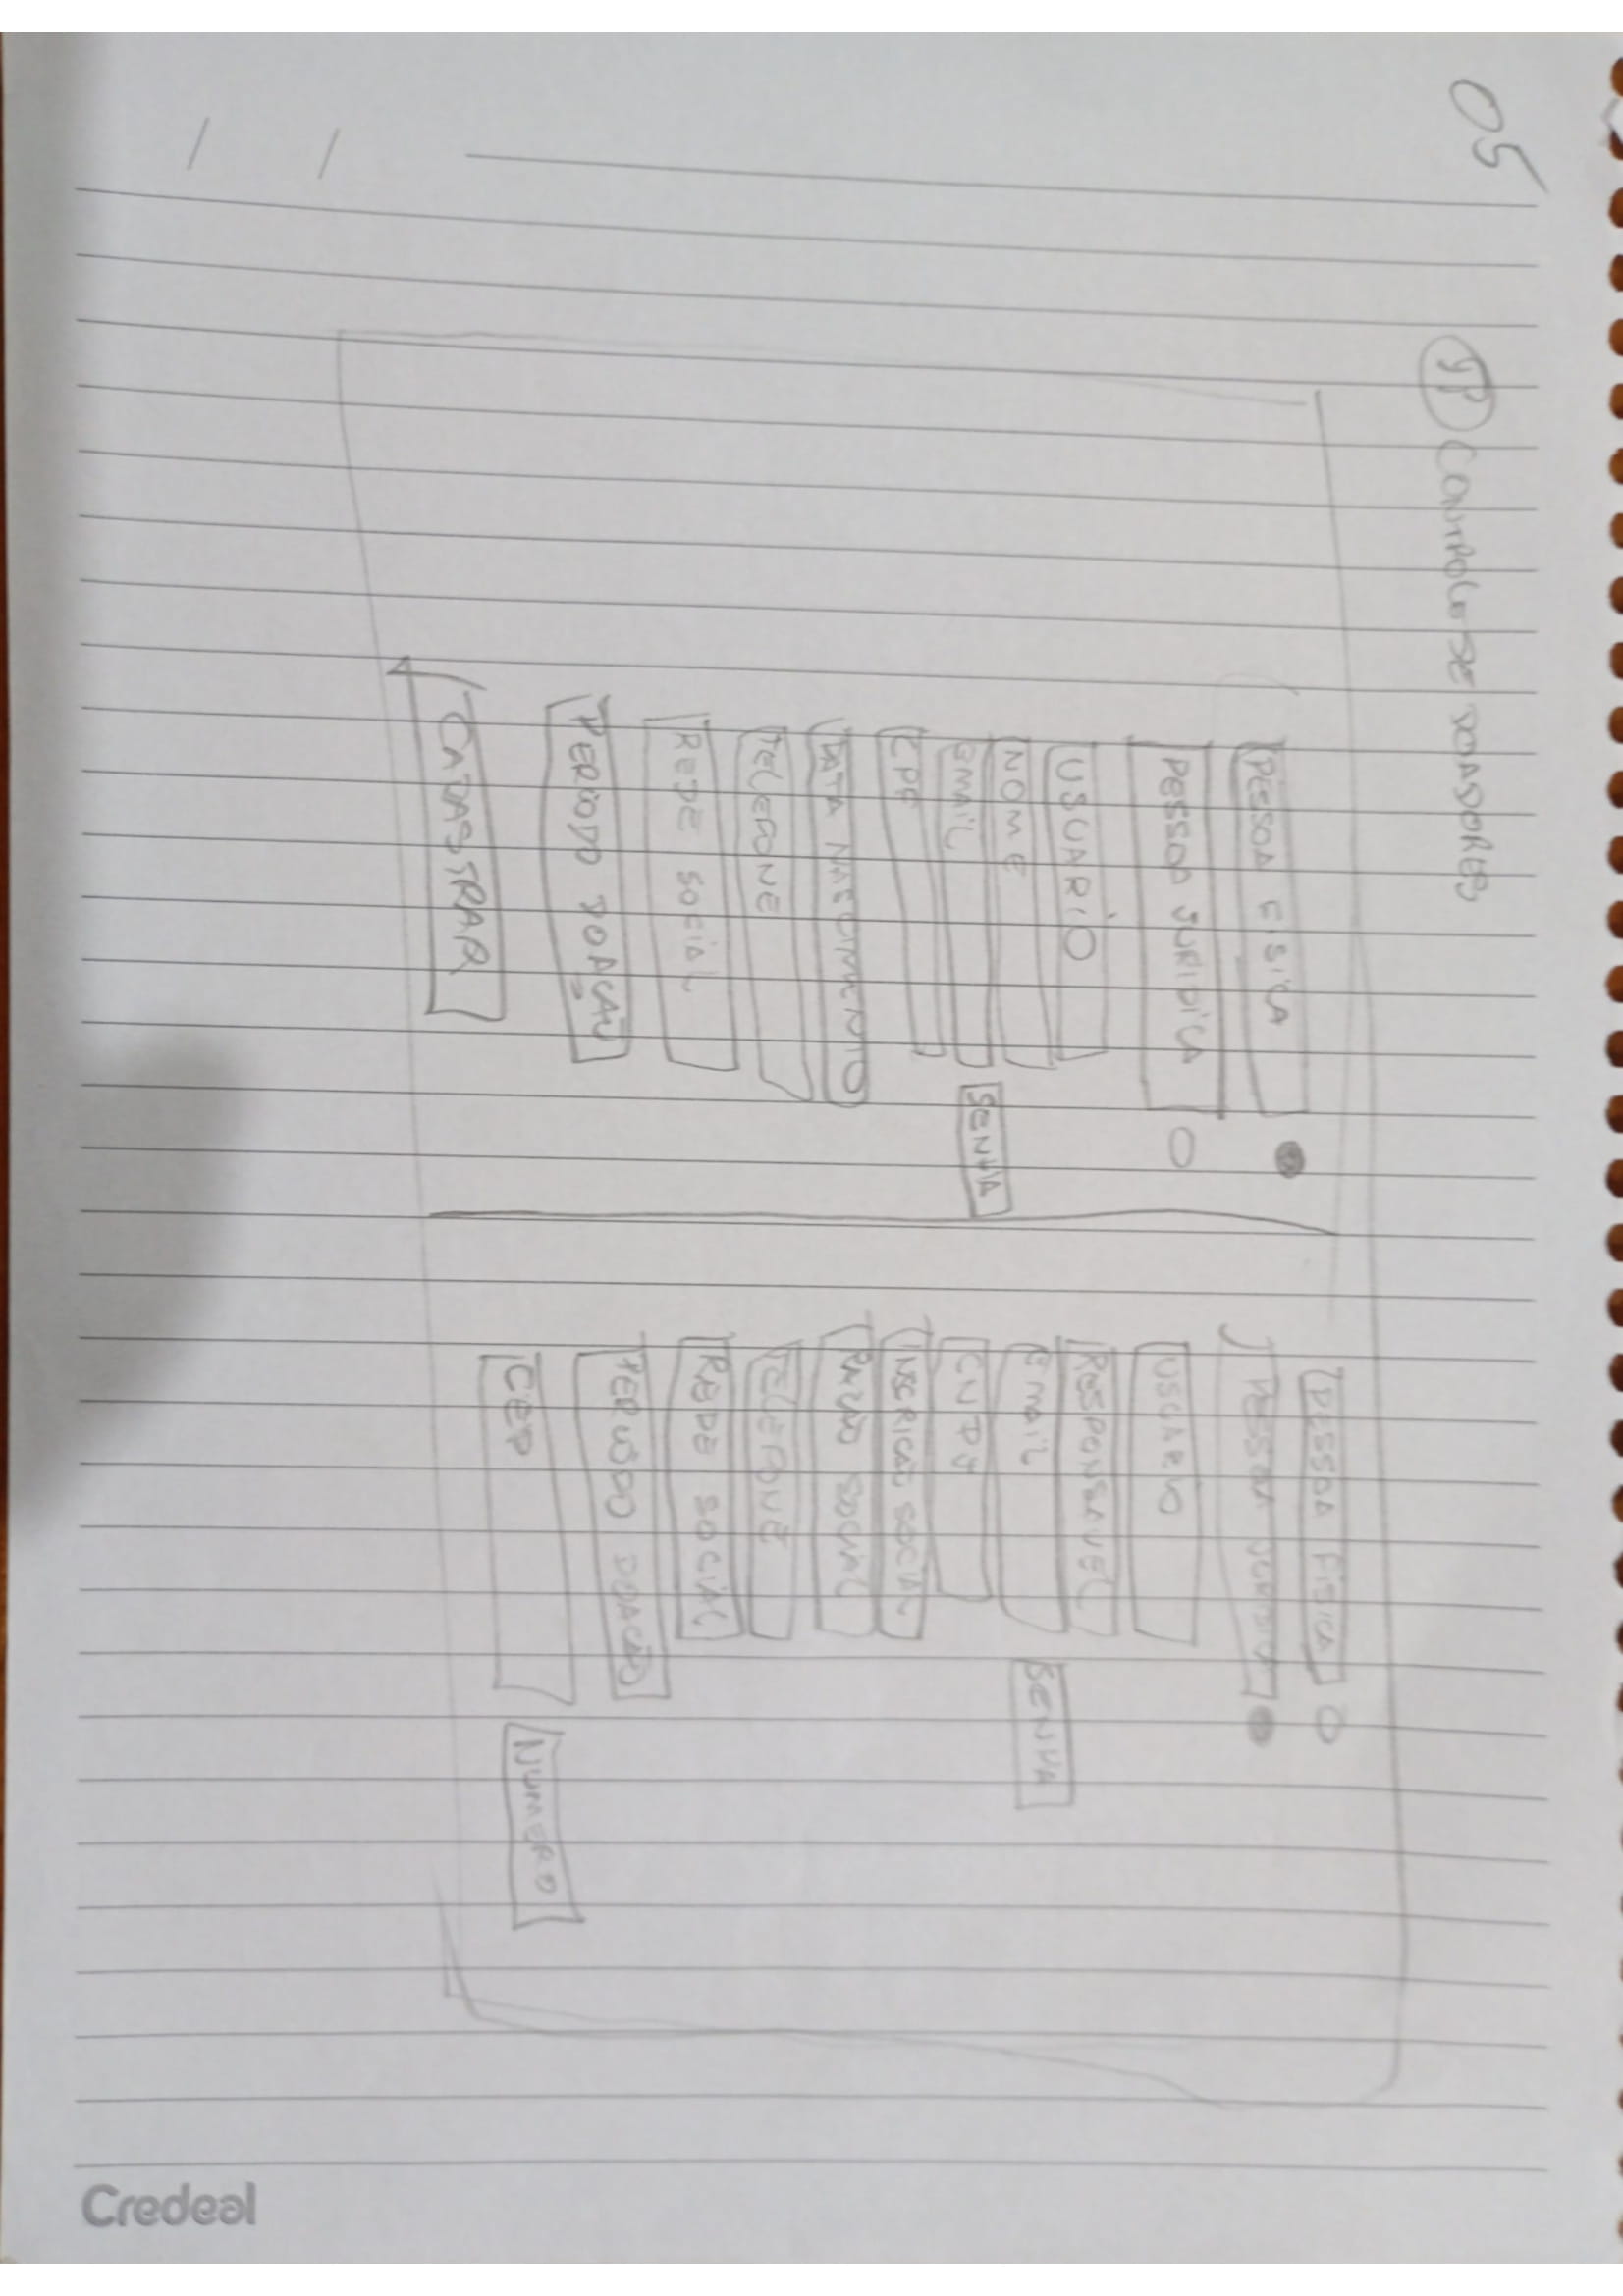 05
JP CONTROLE DE DOADORES
PESSOA FISICA
PESSOA JURIDICA
USUARIO
NOME
EMAIL
SENHA
CPF
DATA NASCIMENTO
TELEFONE
REDE SOCIAL
PERIODO DOAÇÃO
CADASTRAR
PESSOA FISICA
PESSOA JURIDICA
USUARIO
RESPONSAVEL
EMAIL
SENHA
CNPJ
INSCRICAO SOCIAL
RAZÃO SOCIAL
TELEFONE
REDE SOCIAL
PERIODO DOACÃO
CEP
NUMERO
Credeal